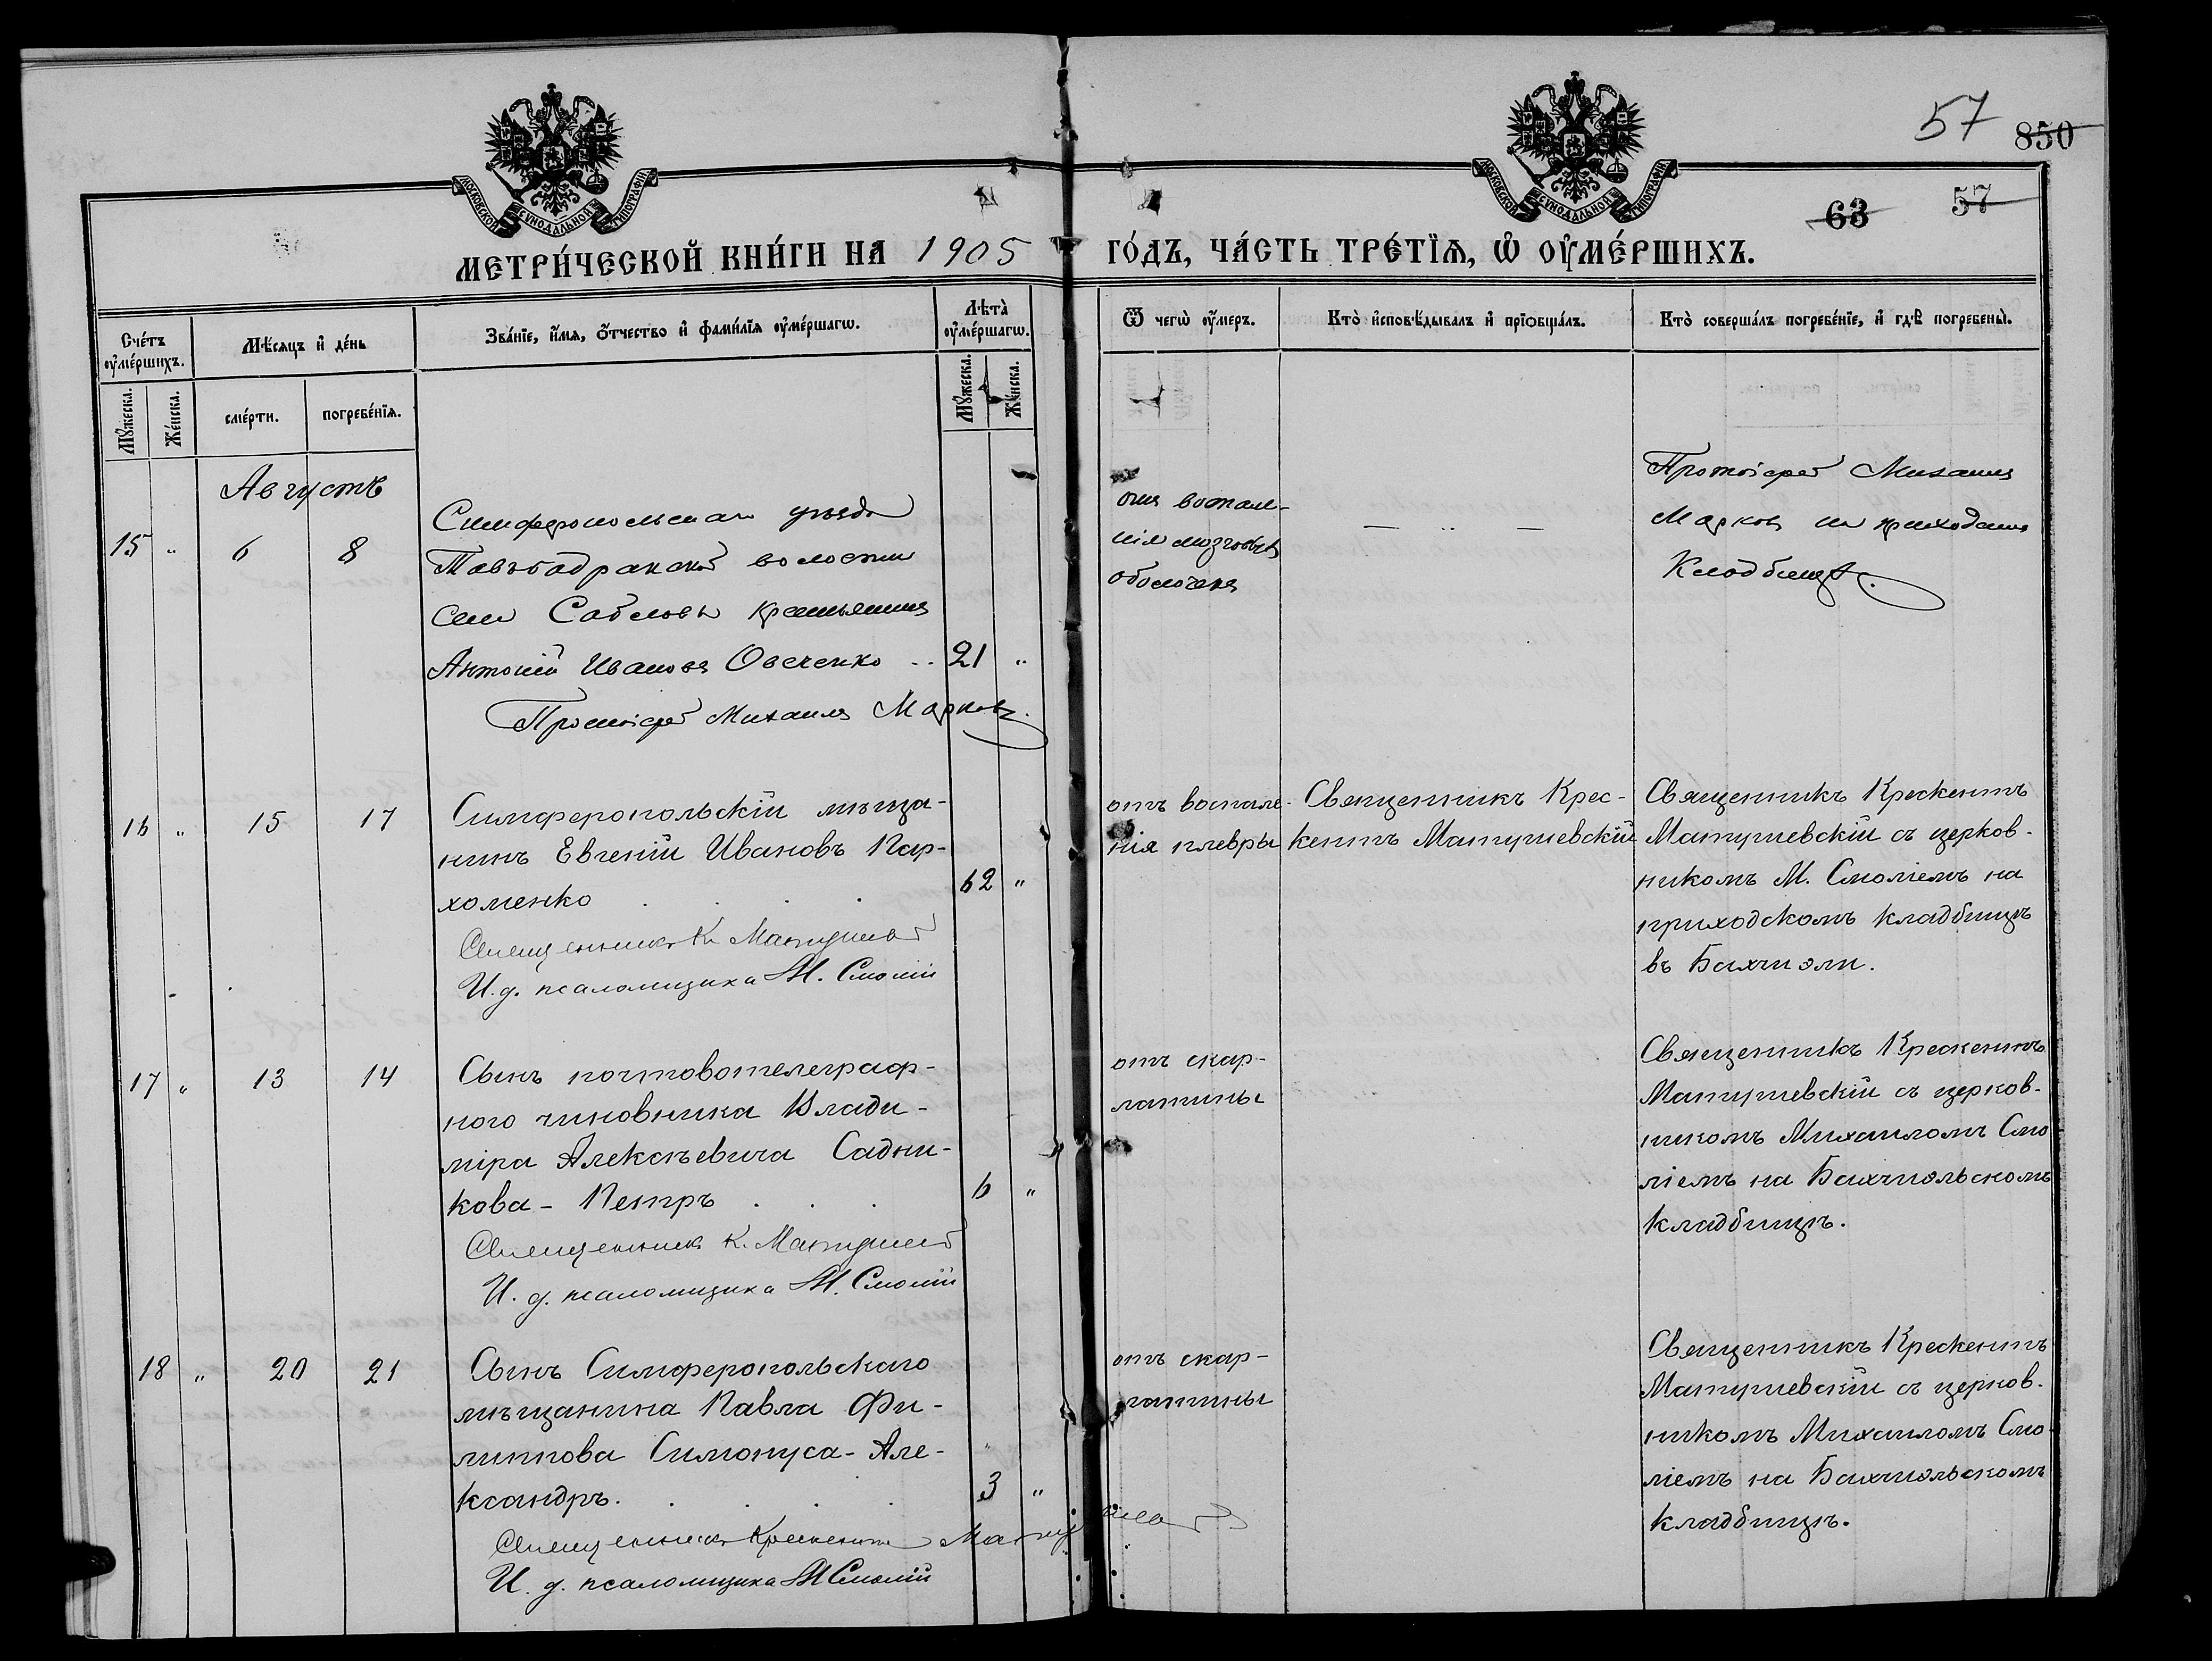 57
850
63
57
МОСКОВСКОЙ СѴНОДАЛЬНОЙ ТИПОГРАФІИ
МОСКОВСКОЙ СѴНОДАЛЬНОЙ ТИПОГРАФІИ
МЕТРИ́ЧЕСКОЙ КНИ́ГИ НА 1905 ГО́ДЪ, ЧА́СТЬ ТРЕ́ТІѦ, Ѡ ОУ҆МЕ́РШИХЪ.
Сче́тъ оу҆ме́ршихъ.
Мѣ́сяцъ и҆ де́нь
Зва́нїе, и҆́мя, о҆́тчество и҆ фами́лїя оу҆ме́ршагѡ.
Лѣта̀ оу҆ме́ршагѡ.
Ѿ чегѡ̀ оу҆́меръ.
Кто̀ и҆сповѣ́дывалъ и҆ прїѡбща́лъ.
Кто̀ соверша́лъ погребе́нїе, и҆ гдѣ̀ погребены̀.
Мꙋ́жеска.
Же́нска.
сме́рти.
погребе́нїя.
Мꙋ́жеска.
Же́нска.
Августъ
15 „ 6 8
Симферопольскаго уѣзда
волости
села Сабловъ крестьянинъ
Антоній Ивановъ Овеченко 21 „
Протоіерей Михаилъ Марковъ.
отъ воспале-
нія мозговыхъ
оболочекъ
— „ —
Протоіерей Михаилъ
Марковъ на приходскомъ
Кладбищѣ.
16 „ 15 17
Симферопольскій мѣща-
нинъ Евгеній Ивановъ Пар-
хоменко . . . 62 „
Священникъ К. Матушев
И. д. псаломщика М. Смолій
отъ воспале-
нія плевры
Священникъ Крес-
кентъ Матушевскій
Священникъ Крескентъ
Матушевскій съ церков-
никомъ М. Смоліемъ на
приходскомъ кладбищѣ
въ Бахчи эли.
17 „ 13 14
Сынъ почтовотелеграф-
ного чиновника Влади-
міра Алексѣевича Садни-
кова - Петръ . . . 6 „
Священникъ К. Матушев
И. д. псаломщика М. Смолій
отъ скар-
латины
Священникъ Крескентъ
Матушевскій съ церков-
никомъ Михаиломъ Смо-
ліемъ на Бахчиэльскомъ
кладбищѣ.
18 „ 20 21
Сынъ Симферопольскаго
мѣщанина Павла Фи-
липпова Симонуса - Але-
ксандръ. . . . 3 „
Священникъ Крескентъ Матушев
И. д. псаломщика М Смолій
отъ скар-
латины
Священникъ Крескентъ
Матушевскій съ церков-
никомъ Михаиломъ Смо-
ліемъ на Бахчиэльскомъ
кладбищѣ.